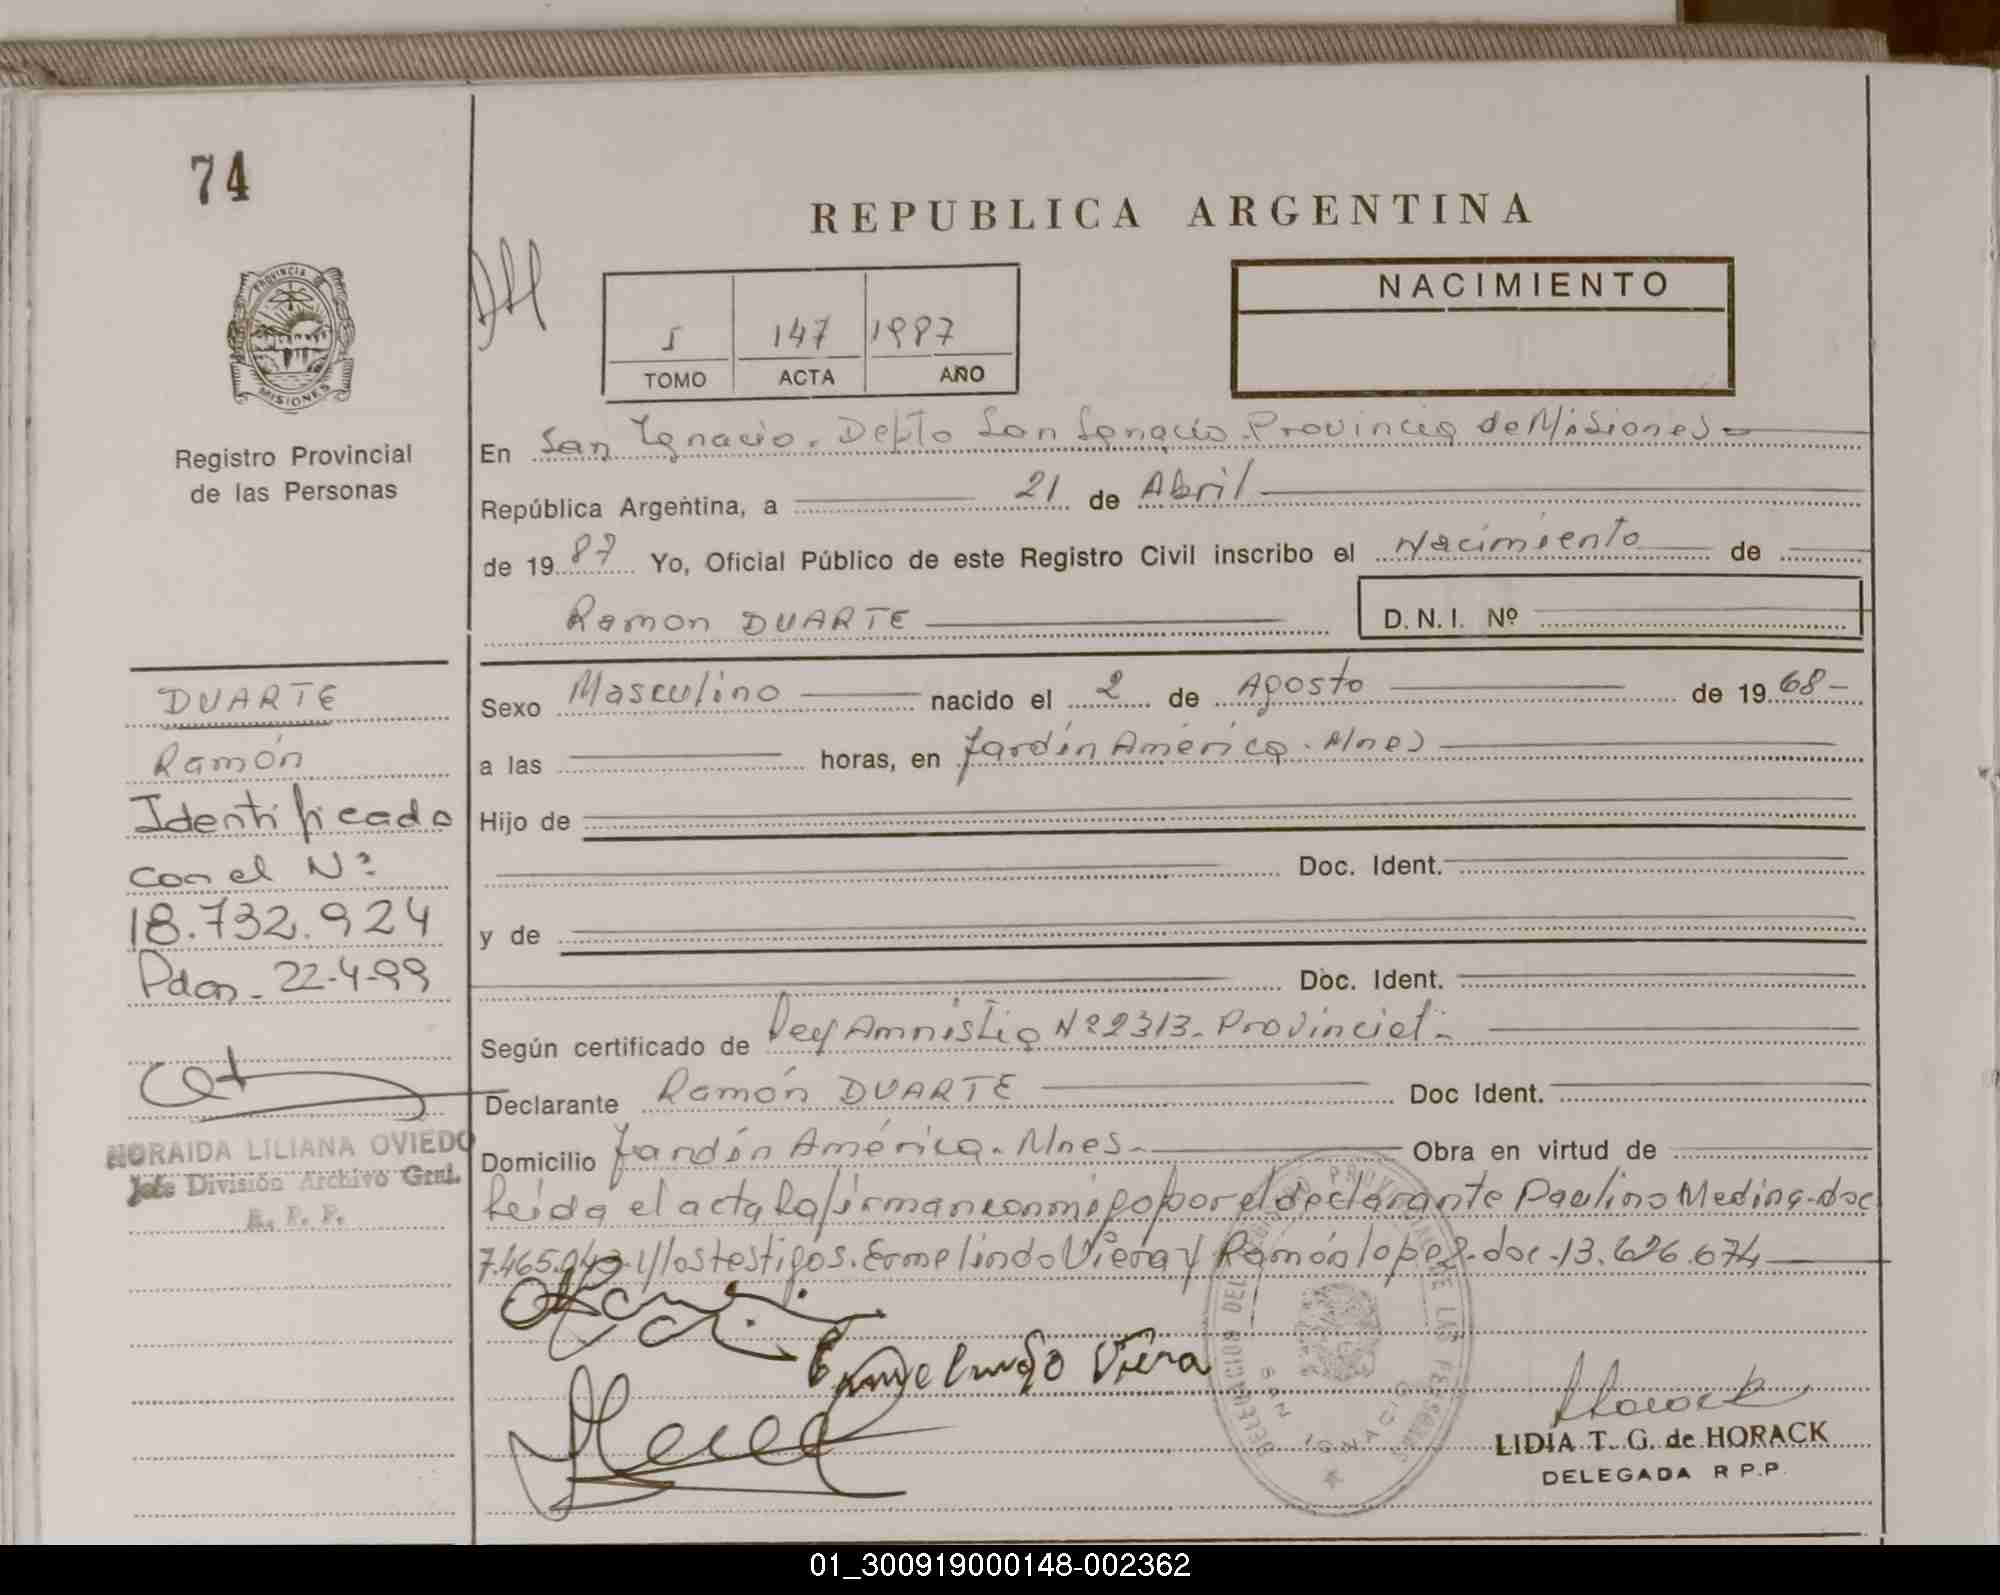 74
REPUBLICA ARGENTINA
PROVINCIA DE
MISIONES
Registro Provincial
de las Personas
5 147 1987
TOMO ACTA AÑO
NACIMIENTO
En San Ignacio. Depto San Ignacio. Provincia de Misiones
República Argentina, a 21 de Abril
de 1987 Yo, Oficial Público de este Registro Civil inscribo el Nacimiento de
Ramon DUARTE D.N.I. Nº
DUARTE
Ramón
Identificado
con el Nº
18.732.924
Pdas. 22-4-99
NORAIDA LILIANA OVIEDO
Jefe División Archivo Gral.
R. P. P.
Sexo Masculino nacido el 2 de Agosto de 1968
a las horas, en Jardín América. Mnes
Hijo de
Doc. Ident.
y de
Doc. Ident.
Según certificado de Ley Amnistia Nº 2313. Provincial
Declarante Ramón DUARTE Doc Ident.
Domicilio Jardín América. Mnes. Obra en virtud de
Leida el acta la firman conmigo por el declarante Paulino Medina. doc
7.465. y los testigos. Ermelindo Viera y Ramón lopez. doc. 13.626.674
Ermelindo Viera
DELEGACION DEL REGISTRO PROVINCIAL DE LAS PERSONAS
SAN IGNACIO
Horack
LIDIA T. G. de HORACK
DELEGADA R P.P.
01_300919000148-002362